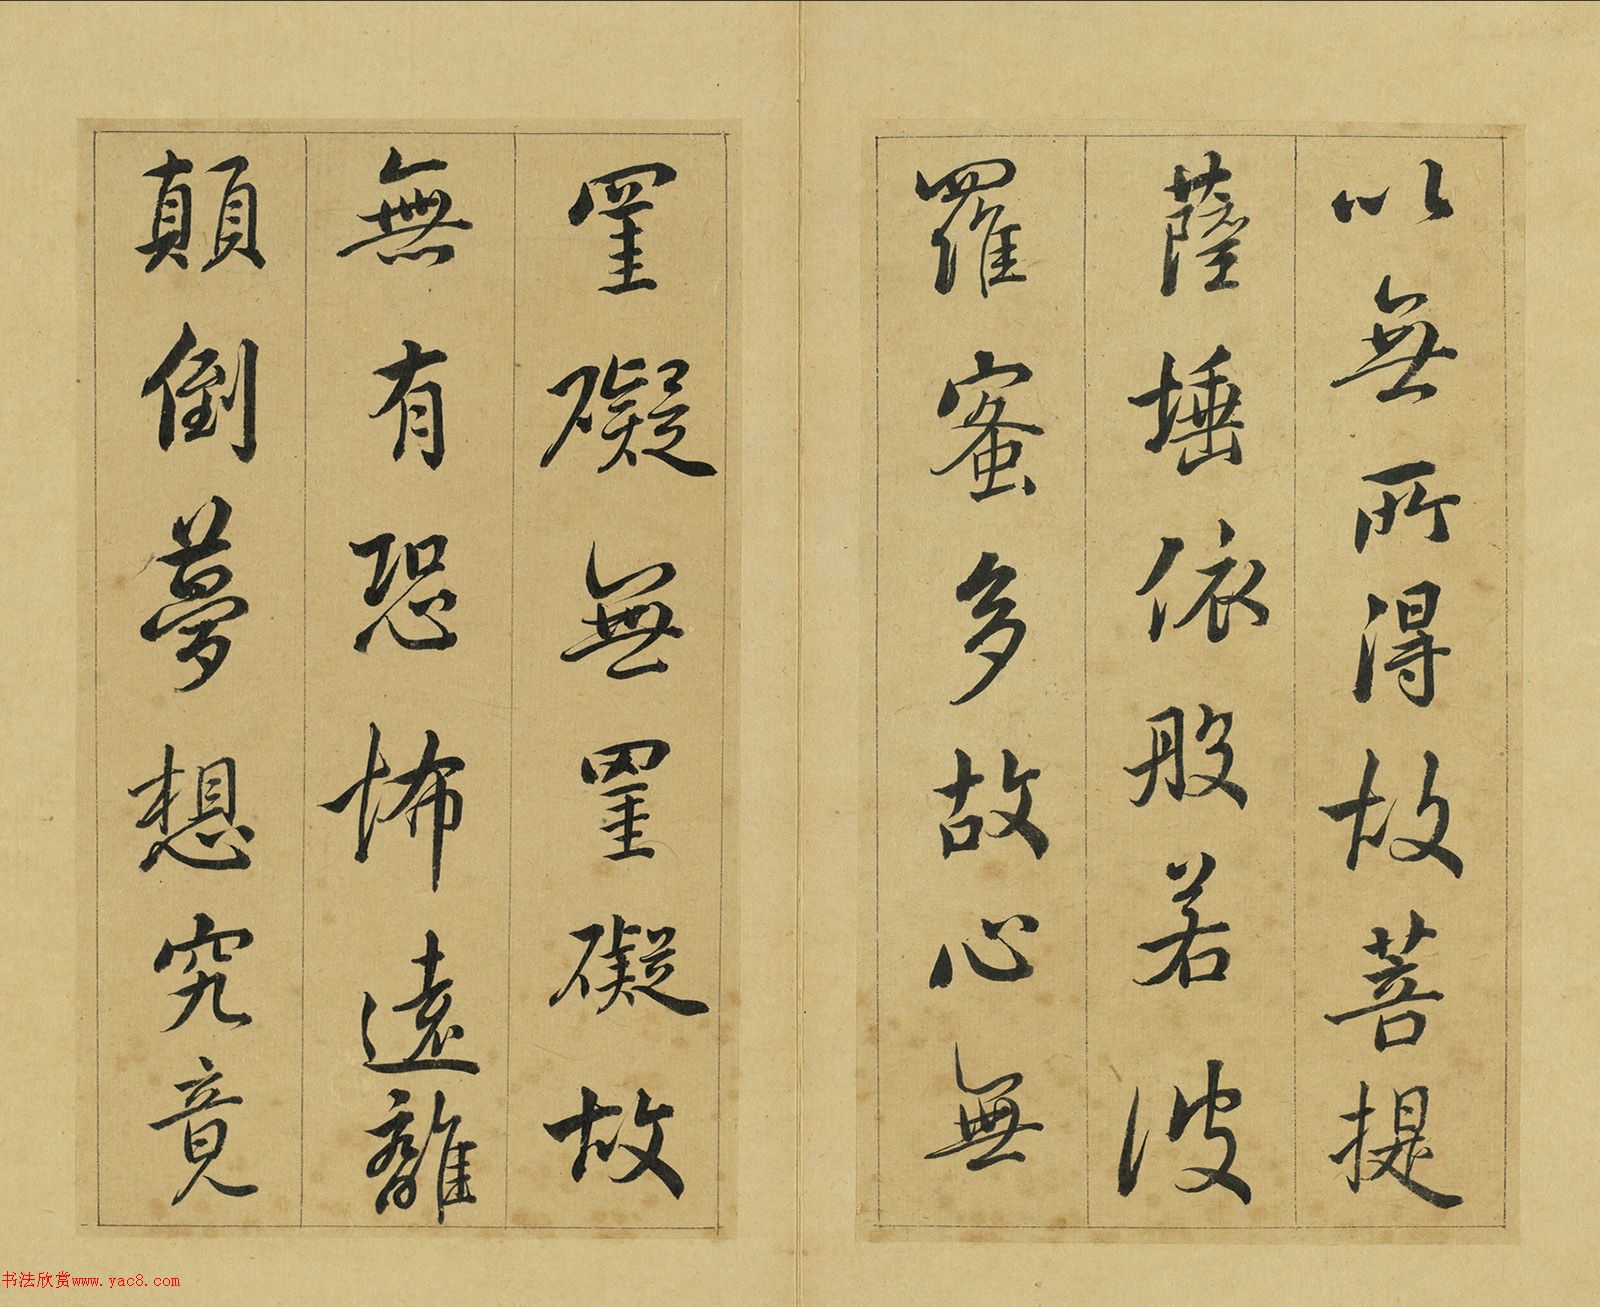 以無所得故菩提
薩埵依般若波
羅蜜多故心無
罣礙無罣礙故
無有恐怖遠離
顛倒夢想究竟
书法欣赏www.yac8.com